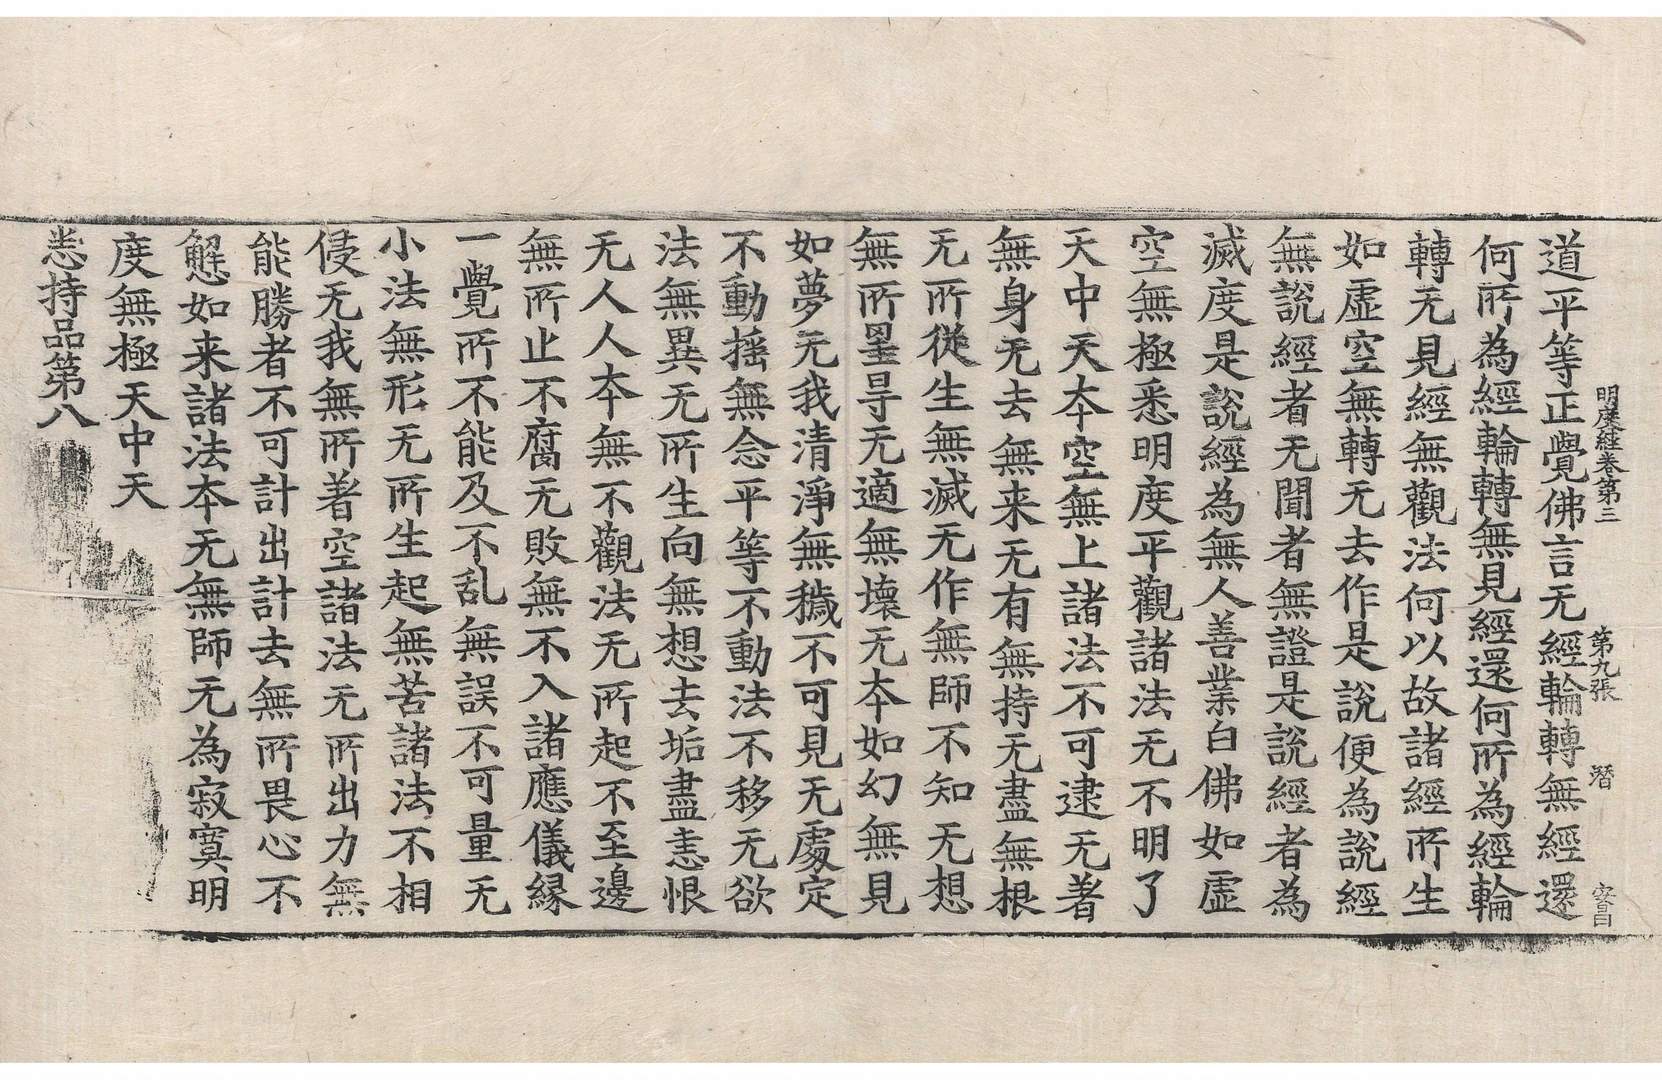 明度經卷第三　第九張　潛　安昌
道平等正覺佛言无經輪轉無經還
何所為經輪轉無見經還何所為經輪
轉无見經無觀法何以故諸經所生
如虛空無轉无去作是說便為說經
無說經者无聞者無證是說經者為
滅度是說經為無人善業白佛如虛
空無極悉明度平觀諸法无不明了
天中天夲空無上諸法不可逮无著
無身无去無来无有無持无盡無根
无所從生無滅无作無師不知无想
無所罣㝵无適無壞无夲如幻無見
如夢无我清淨無穢不可見无處定
不動揺無念平等不動法不移无欲
法無異无所生向無想去垢盡恚恨
无人人夲無不觀法无所起不至邊
無所止不腐无敗無不入諸應儀縁
一覺所不能及不乱無誤不可量无
小法無形无所生起無苦諸法不相
侵无我無所著空諸法无所出力無
能勝者不可計出計去無所畏心不
解如来諸法夲无無師无為寂寞明
度無極天中天
悉持品第八